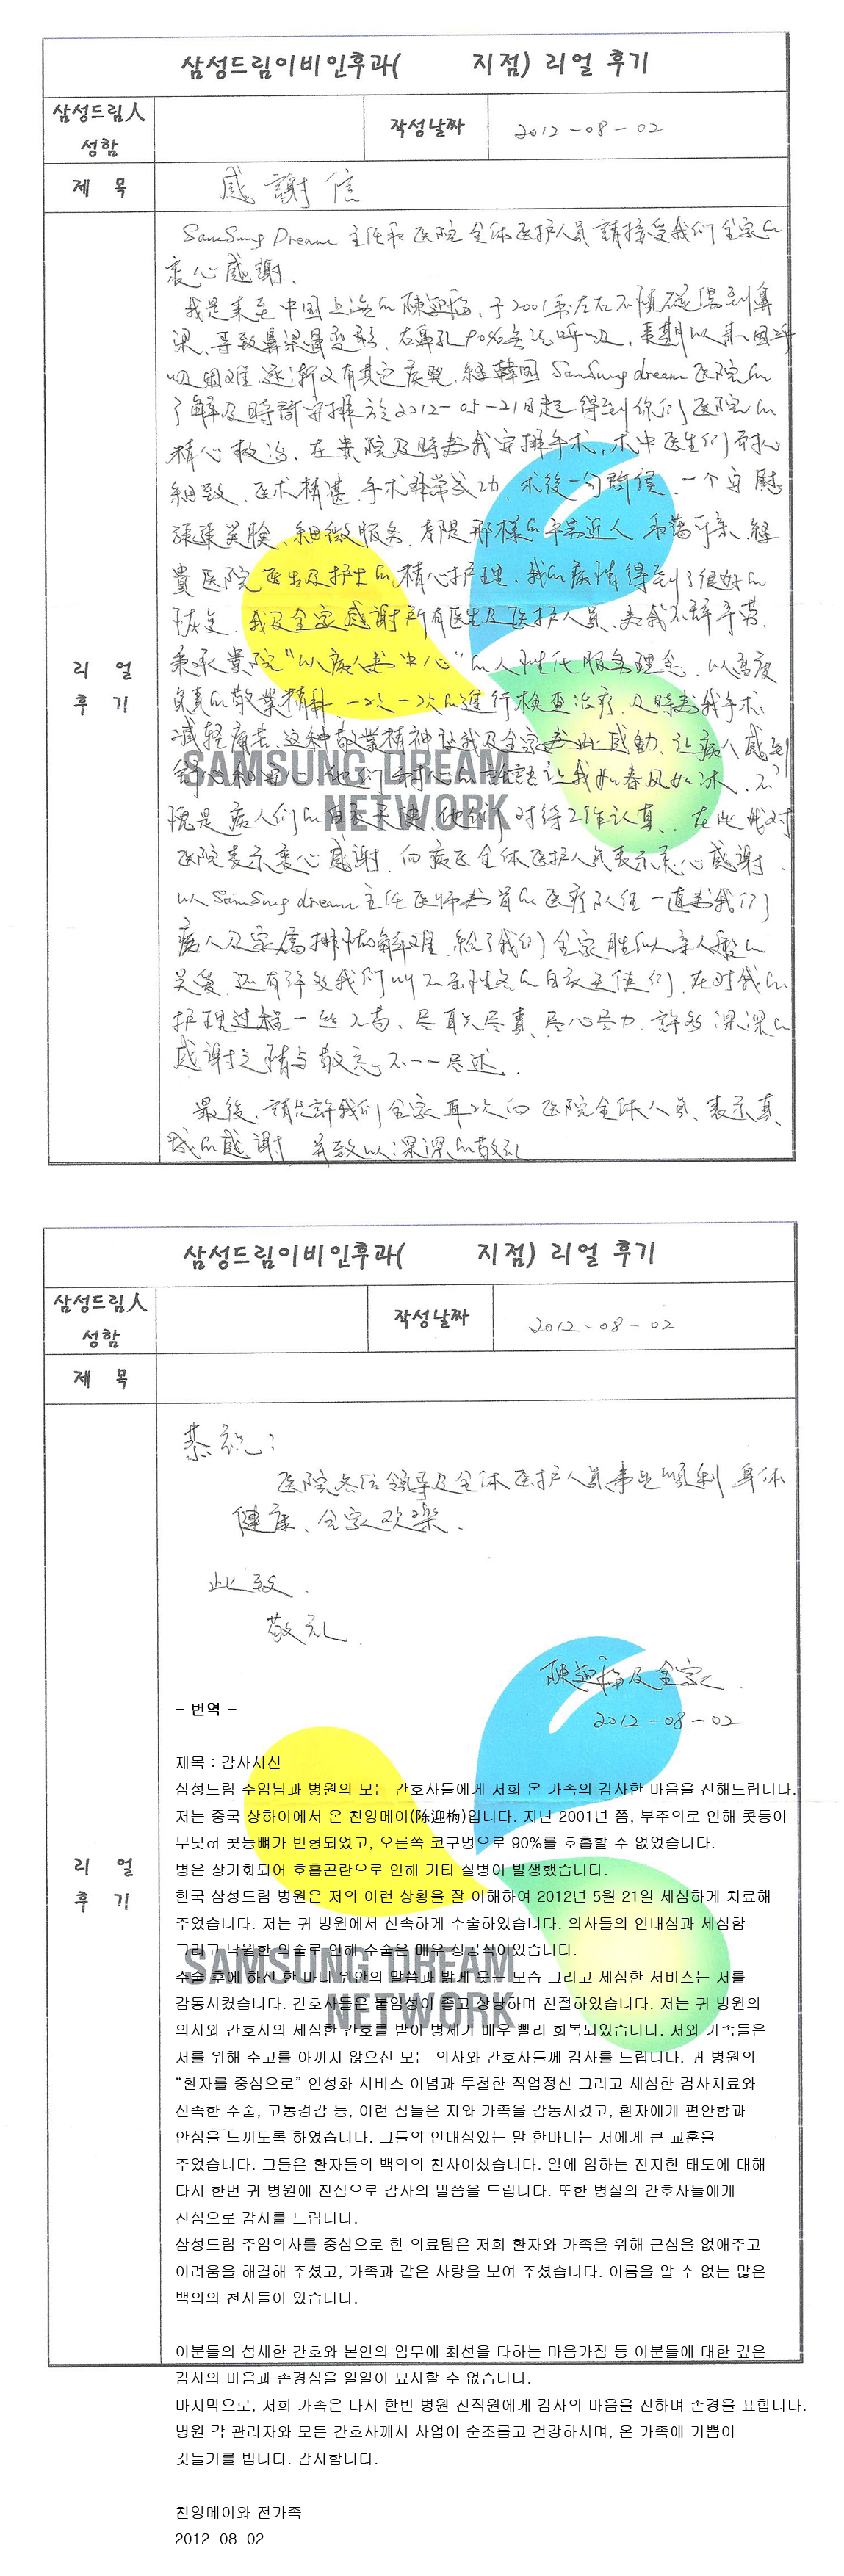 삼성드림이비인후과(        지점) 리얼 후기
삼성드림人
성함
작성날짜
2012-08-02
제 목
感謝信
SamSung Dream 主任和医院全体医护人員請接受我们全家的
衷心感謝.
我是来至中国上海的陳迎梅, 于2001年左右不慎碰傷到鼻
梁, 导致鼻梁骨变形, 右鼻孔90%无法呼吸, 長期以来因呼
吸困难逐渐又有其它疾患. 経韓国 SamSung dream 医院的
了解及時 安排於2012-05-21日起得到你们医院的
精心救治, 在貴院及時為我安排手术, 术中医生们耐心
細致, 医术精湛, 手术非常成功, 术後一句問候, 一个安慰
張張笑臉, 細微服务, 都是那様的平易近人, 和蔼可亲. 経
貴医院医生及护士的精心护理, 我的病情得到了很好的
恢复. 我及全家感謝所有医生及医护人员, 為我不辞辛劳,
秉承貴院"以病人為中心"的人性化服务理念, 以高度
負責的敬業精神, 一次一次的進行検查治疗, 及時為我手术,
减轻痛苦, 这种敬業精神让我及全家為此感動, 让病人感到
他们耐心的話語让我如春风如沐, 不
愧是病人们的白衣天使, 他们对待工作认真, 在此我对
医院表示衷心感謝, 向病区全体医护人员表示衷心感謝.
以 SamSung dream 主任医师為首的医疗队伍一直為我们
病人及家属排忧解难, 給了我们全家胜似亲人般的
关爱, 还有许多我们叫不出姓名的白衣天使们, 在对我的
护理过程一丝不苟, 尽职尽責, 尽心尽力, 許多深深的
感謝之情与敬意不一一尽述.
最後, 請允許我们全家再次向医院全体人员, 表示真
诚的感謝 并致以深深的敬礼
리 얼
후 기
SAMSUNG DREAM
NETWORK
삼성드림이비인후과(        지점) 리얼 후기
삼성드림人
성함
작성날짜
2012-08-02
제 목
恭祝:
医院各位領导及全体医护人员事业順利 身体
健康, 全家欢樂.
此致.
敬礼.
陳迎梅及全家人.
2012-08-02
- 번역 -
제목 : 감사서신
삼성드림 주임님과 병원의 모든 간호사들에게 저희 온 가족의 감사한 마음을 전해드립니다.
저는 중국 상하이에서 온 천잉메이(陈迎梅)입니다. 지난 2001년 쯤, 부주의로 인해 콧등이
부딪혀 콧등뼈가 변형되었고, 오른쪽 코구멍으로 90%를 호흡할 수 없었습니다.
병은 장기화되어 호흡곤란으로 인해 기타 질병이 발생했습니다.
한국 삼성드림 병원은 저의 이런 상황을 잘 이해하여 2012년 5월 21일 세심하게 치료해
주었습니다. 저는 귀 병원에서 신속하게 수술하였습니다. 의사들의 인내심과 세심함
그리고 탁월한 의술로 인해 수술은 매우 성공적이었습니다.
수술 후에 하신 한 마디 위안의 말씀과 밝게 웃는 모습 그리고 세심한 서비스는 저를
감동시켰습니다. 간호사들은 붙임성이 좋고 상냥하며 친절하였습니다. 저는 귀 병원의
의사와 간호사의 세심한 간호를 받아 병세가 매우 빨리 회복되었습니다. 저와 가족들은
저를 위해 수고를 아끼지 않으신 모든 의사와 간호사들께 감사를 드립니다. 귀 병원의
“환자를 중심으로” 인성화 서비스 이념과 투철한 직업정신 그리고 세심한 검사치료와
신속한 수술, 고통경감 등, 이런 점들은 저와 가족을 감동시켰고, 환자에게 편안함과
안심을 느끼도록 하였습니다. 그들의 인내심있는 말 한마디는 저에게 큰 교훈을
주었습니다. 그들은 환자들의 백의의 천사이셨습니다. 일에 임하는 진지한 태도에 대해
다시 한번 귀 병원에 진심으로 감사의 말씀을 드립니다. 또한 병실의 간호사들에게
진심으로 감사를 드립니다.
삼성드림 주임의사를 중심으로 한 의료팀은 저희 환자와 가족을 위해 근심을 없애주고
어려움을 해결해 주셨고, 가족과 같은 사랑을 보여 주셨습니다. 이름을 알 수 없는 많은
백의의 천사들이 있습니다.
이분들의 섬세한 간호와 본인의 임무에 최선을 다하는 마음가짐 등 이분들에 대한 깊은
감사의 마음과 존경심을 일일이 묘사할 수 없습니다.
마지막으로, 저희 가족은 다시 한번 병원 전직원에게 감사의 마음을 전하며 존경을 표합니다.
병원 각 관리자와 모든 간호사께서 사업이 순조롭고 건강하시며, 온 가족에 기쁨이
깃들기를 빕니다. 감사합니다.
천잉메이와 전가족
2012-08-02
리 얼
후 기
SAMSUNG DREAM
NETWORK